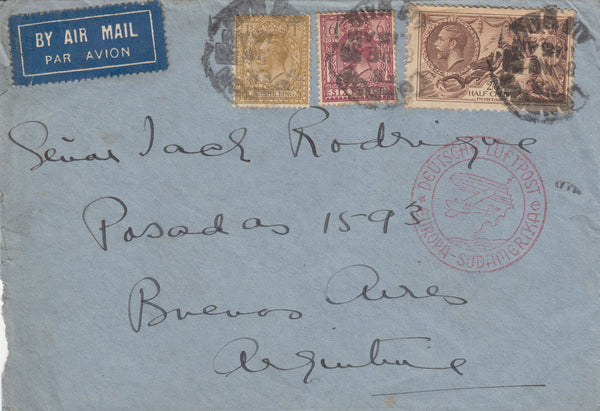 BY AIR MAIL
PAR AVION
HALF CROWN
Señor Jack Rodrigue
Posadas 1593
Buenos Aires
Argentine
DEUTSCHE LUFTPOST
EUROPA-SÜDAMERIKA